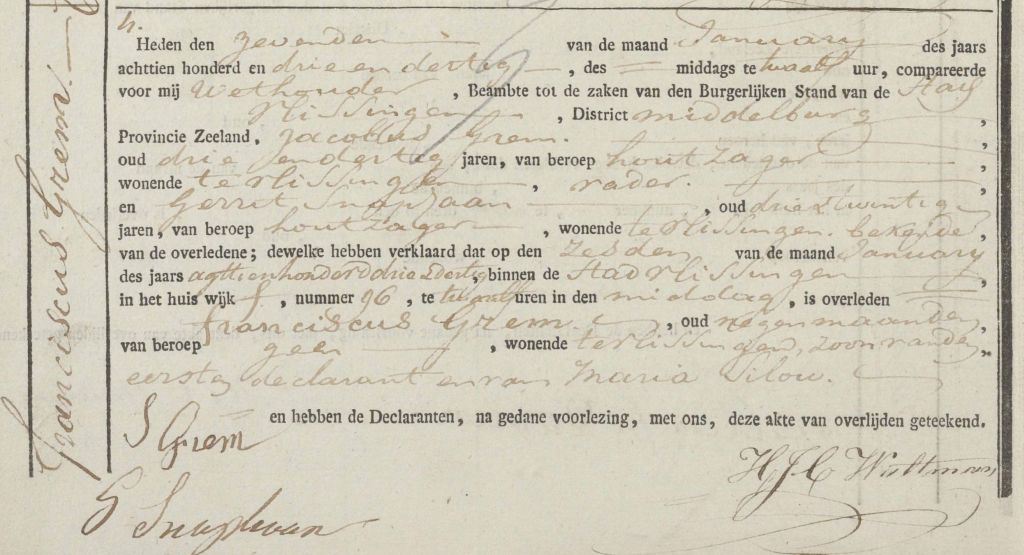 Franciscus Grem.
4.
Heden den zevenden van de maand January des jaars
achttien honderd en drie en dertig, des = middags te twaalf uur, compareerde
voor mij Wethouder, Beambte tot de zaken van den Burgerlijken Stand van de Stad
Vlissingen, District middelburg,
Provincie Zeeland, Jacobus Grem.,
oud drie en dertig jaren, van beroep houtzager,
wonende te vlissingen, vader.,
en Gerrit Snaphaan, oud drie & twintig
jaren, van beroep houtzager, wonende te vlissingen. bekende,
van de overledene; dewelke hebben verklaard dat op den zesden van de maand January
des jaars agttienhonderd drie & dertig, binnen de Stad Vlissingen,
in het huis wijk f, nummer 96, te twaalf uren in den middag, is overleden
franciscus Grem., oud negen maanden,
van beroep geen, wonende te vlissingen, zoon van den,
eersten declarant en van Maria
en hebben de Declaranten, na gedane voorlezing, met ons, deze akte van overlijden geteekend.
J Grem
H J C
G Snaphaan